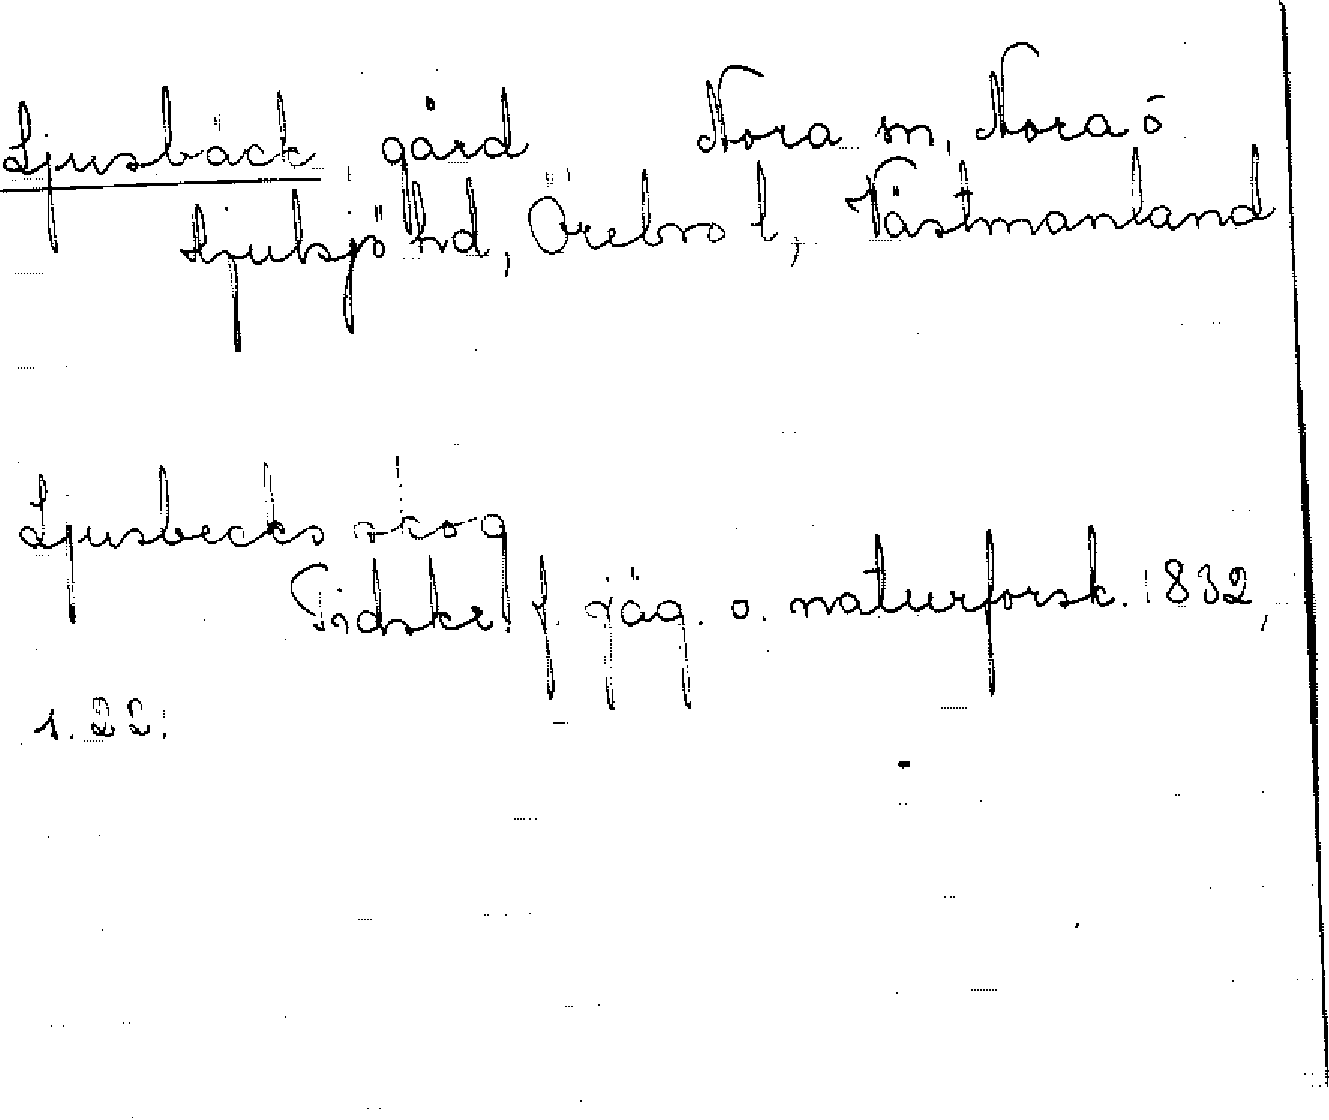 Ljusbäck gård Nora sn, Nora ö
hjulsjö hd, Örebro l, Västmanland
Ljusbecks skog
Tidskr f. jäg. o. naturforsk. 1832,
s. 22.